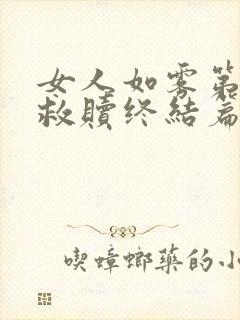 女人如雾第
救赎终结篇
喫蟑螂藥的小